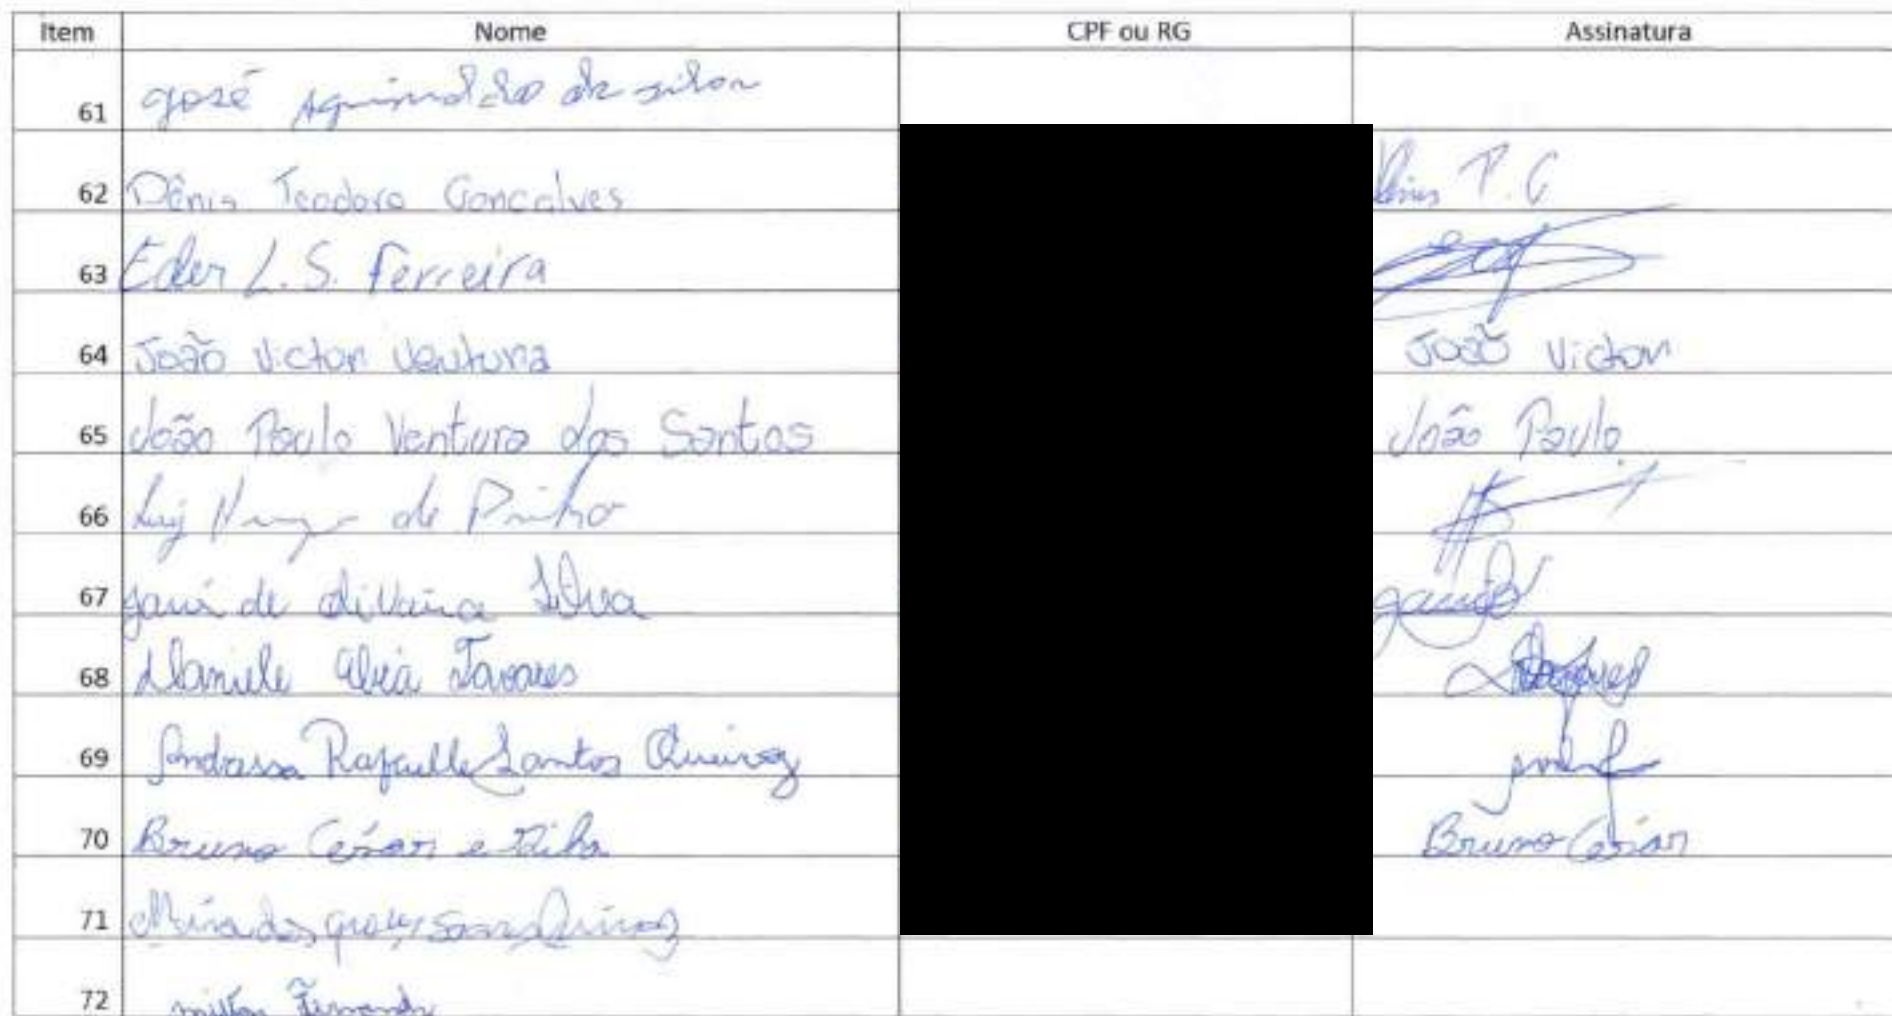 Item Nome CPF ou RG Assinatura
61 José Aguinaldo da silva
62 Dênis Teodoro Goncalves Dênis T. G
63 Eder L. S. Ferreira
64 João Victor Ventura João Victor
65 João Paulo Ventura dos Santos João Paulo
66 Luiz de Pinho
67 de Oliveira Silva
68 Daniele Tavares
69 Andressa Rafaelle Santos Queiroz
70 Bruno César e Bruno César
71 Queiroz
72 Fernando